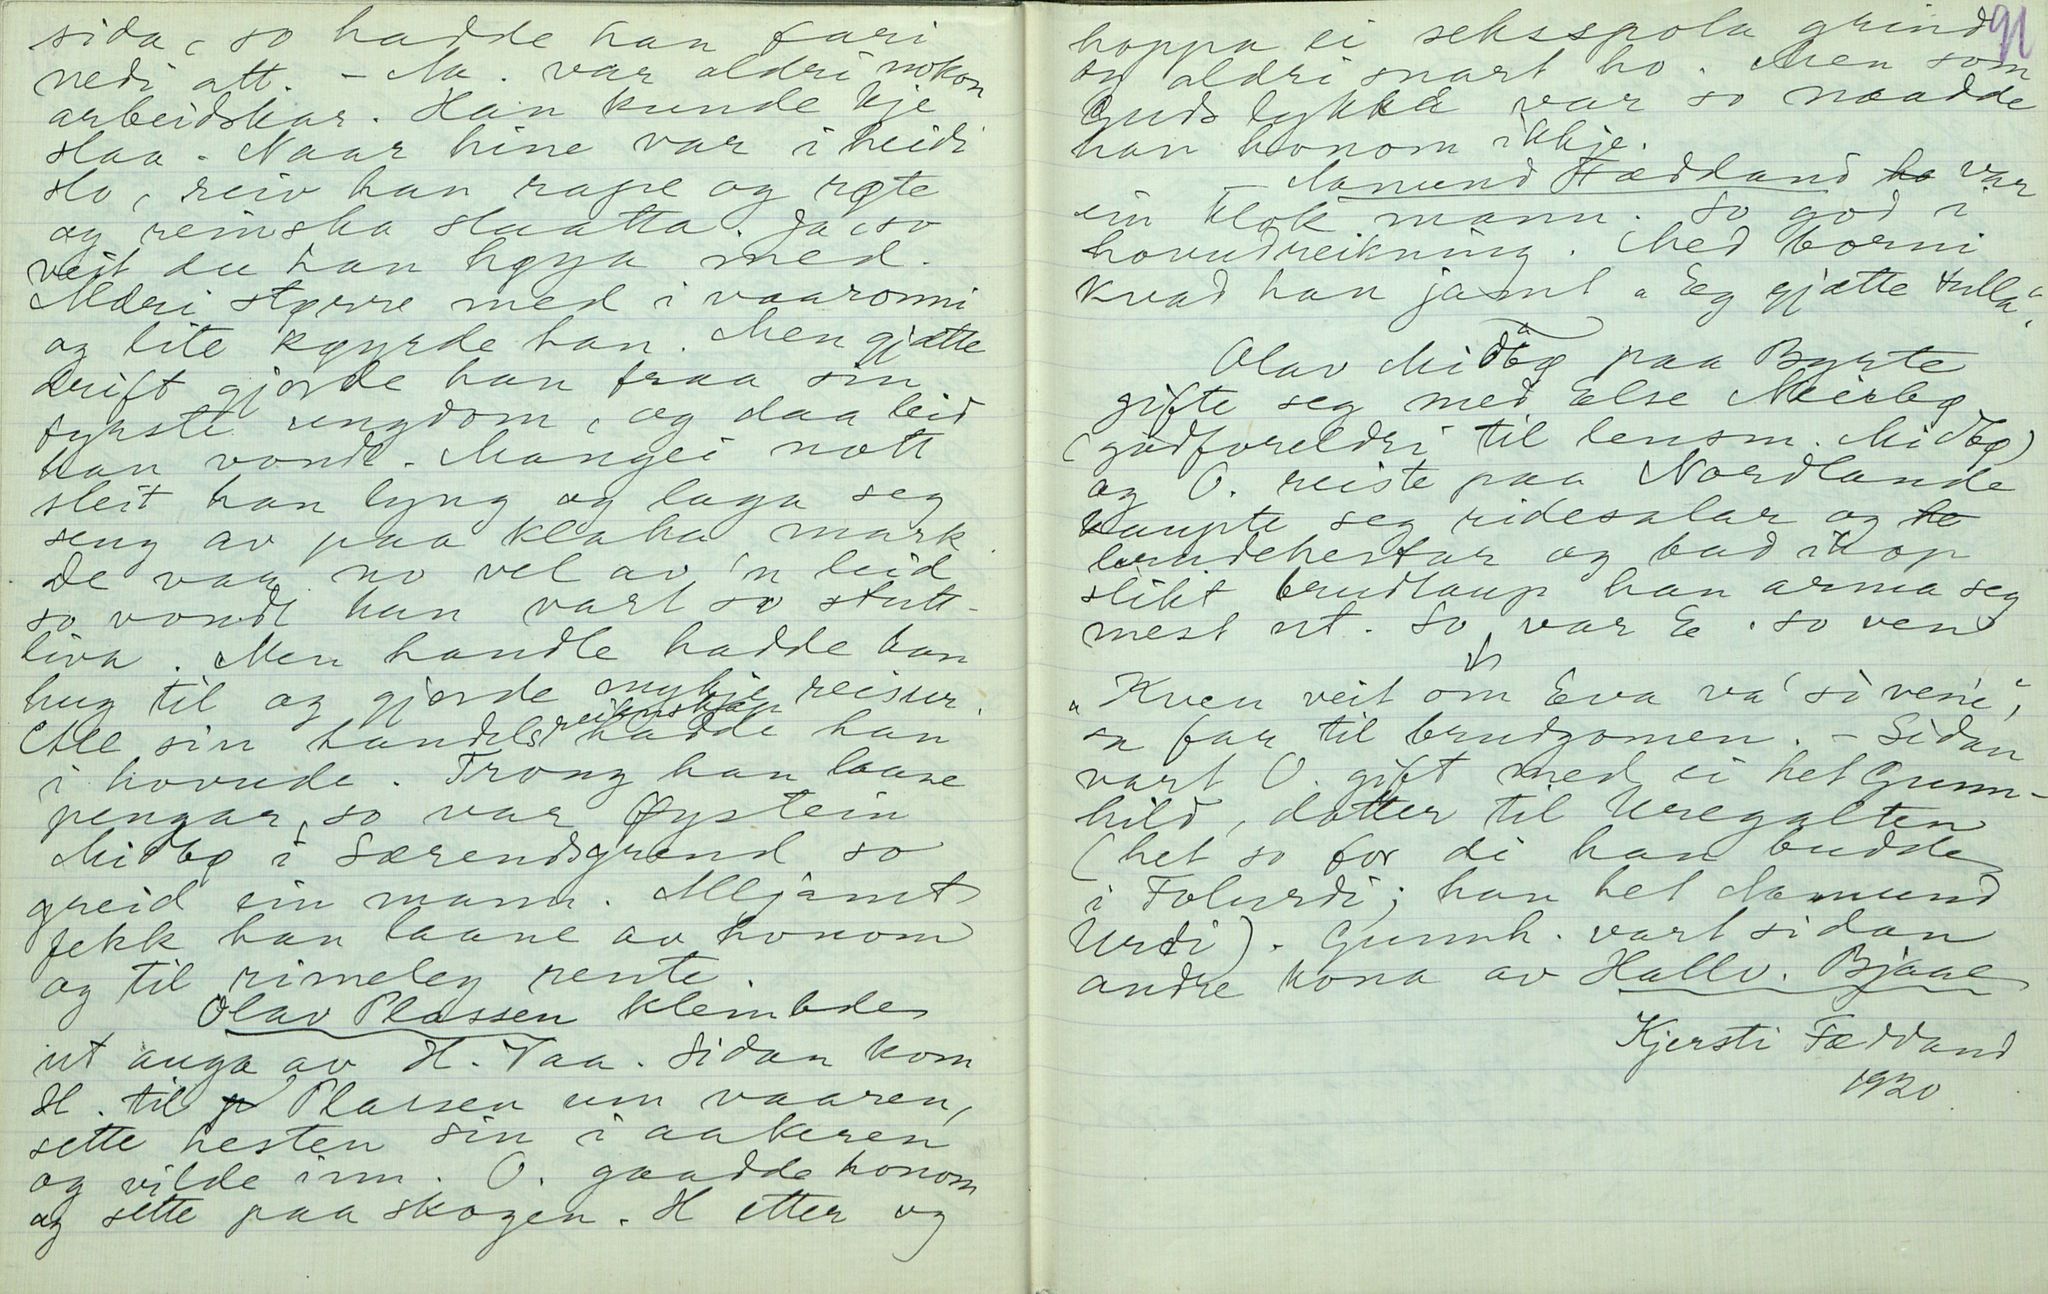 sida, so hadde han fari
nedi att. - Aa. var aldri nokon
arbeidskar. Han kunde kje
slaa. Naar hine var i heidi
slo, reiv han rape og røte
og reinska slaatta. Ja, so
veit du han høya med.
Aldri større med i vaaronni
og lite køyrde han. Men gjætte
drift gjorde han fraa sin
fyrste ungdom, og daa leid
han vondt. Mangei nott
sleit han lyng og laga seg
seng av paa klaka mark.
De var no vel av 'n leid
so vondt han vart so stutt-
liva. Men handle hadde han
hug til og gjorde mykje reisur.
All sin handelsreikneskap hadde han
i hovude. Trong han laane
pengar, so var Øystein
Midbø i Særendsgrend so
greid ein mann. Alljamt
fekk han laane av honom
og til rimeleg rente.
Olav Plassen kleimde
ut auga av H. Vaa. Sidan kom
H. til Plassen um vaaren,
sette hesten sin i aakeren
og vilde inn. O. gaadde honom
og sette paa skogen. H etter og
91
hoppa ei seksspola grind
og aldri snart ho. Men som
Guds lykka var so naadde
han honom ikkje.
Aamund Fæddland var
ein klok mann. So god i
hovudreikning. Med borni
kvad han jamt "Eg gjætte tulla".
Olav Midbø paa Byrte
gifte seg med Else Neirbø
(godforeldri til lensm. Midbø)
og O. reiste paa Nordlande
kaupte seg ridesalar og
brudehestar og bad ihop
slikt brudlaup han arma seg
mest ut. So var E. so ven
"Kven veit om Eva va' si ven'e",
sa far til brudgomen. - Sidan
vart O. gift med ei het Gunn-
hild, dotter til Uregalten
(het so for di han budde
i Folurdi; han het Aamund
Urdi). Gunnh. vart sidan
andre kona av Hallv. Bjaae
Kjersti Fæddand
1920